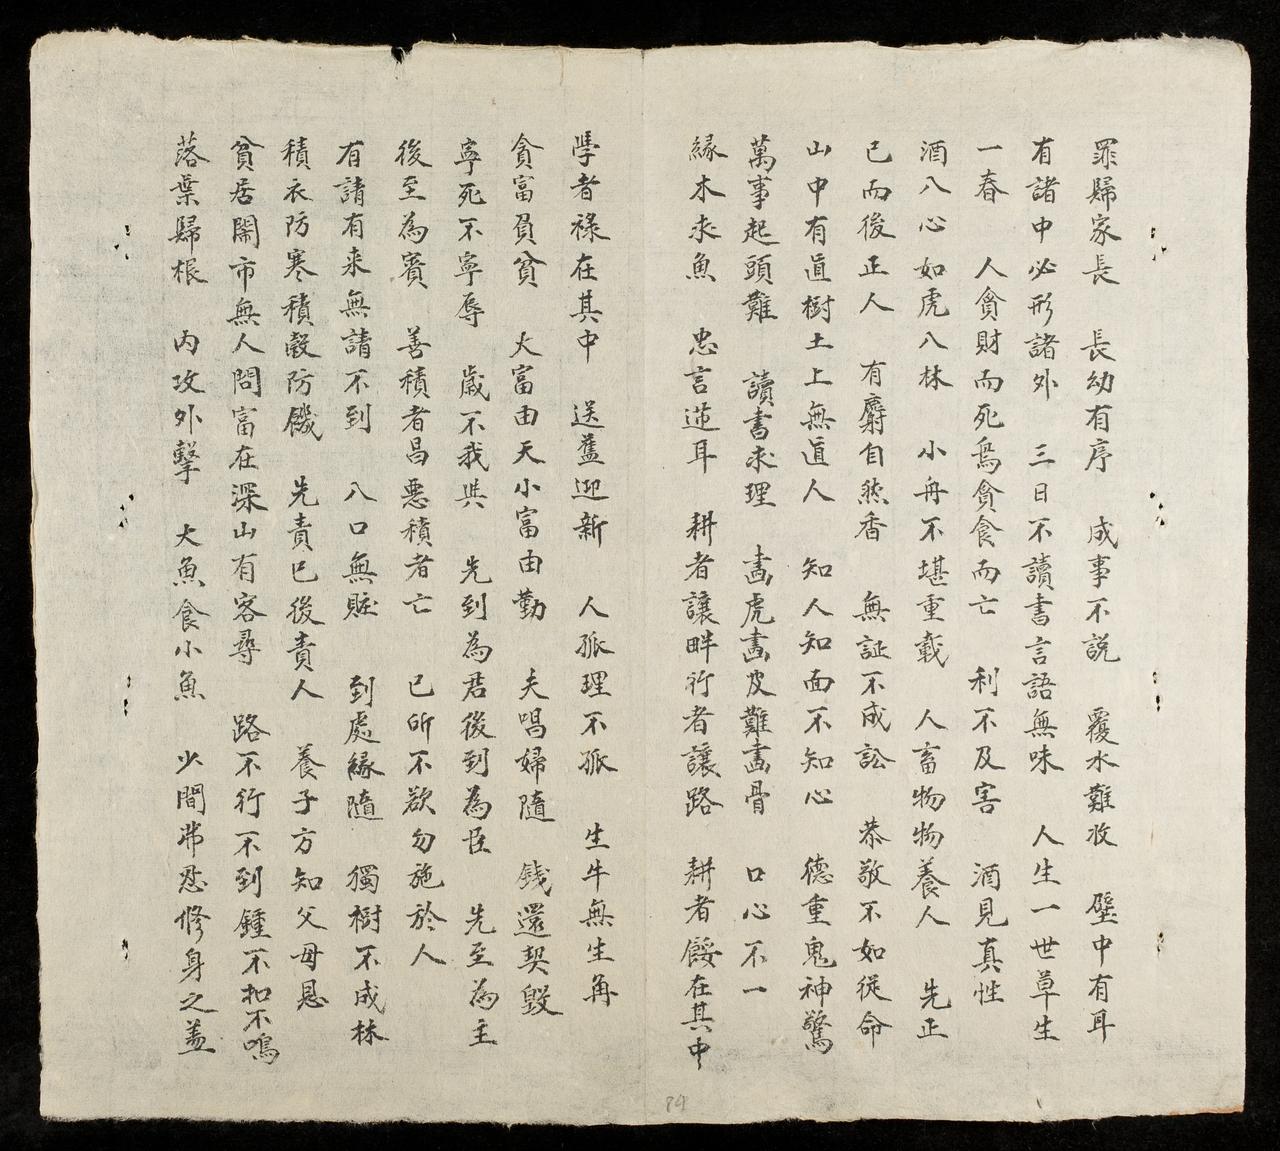 罪歸家長　長幼有序　成事不説　覆水難收　壁中有耳
有諸中必形諸外　三日不讀書言語無味　人生一世草生
一春　人貪財而死鳥貪食而亡　利不及害　酒見真性
酒八心如虎八林　小舟不堪重載　人畜物物養人　先正
己而後正人　有麝自然香　無証不成訟　恭敬不如從命
山中有道樹土上無道人　知人知面不知心　德重鬼神驚
萬事起頭難　讀書求理　畵虎畵皮難畵骨　口心不一
緣木求魚　忠言逆耳　耕者讓畔行者讓路　耕者餒在其中
學者祿在其中　送舊迎新　人孤理不孤　生牛無生角
貪富負貧　大富由天小富由勤　夫唱婦隨　錢還契毀
寧死不寧辱　歲不我與　先到為君後到為臣　先至為主
後至為賓　善積者昌惡積者亡　已所不欲勿施於人
有請有来無請不到　八口無賍　到處緣隨　獨樹不成林
積衣防寒積穀防饑　先責己後責人　養子方知父母恩
貧居鬧市無人問富在深山有客尋　路不行不到鍾不扣不鳴
落葉歸根　内攻外擊　大魚食小魚　少間常忍修身之益
84